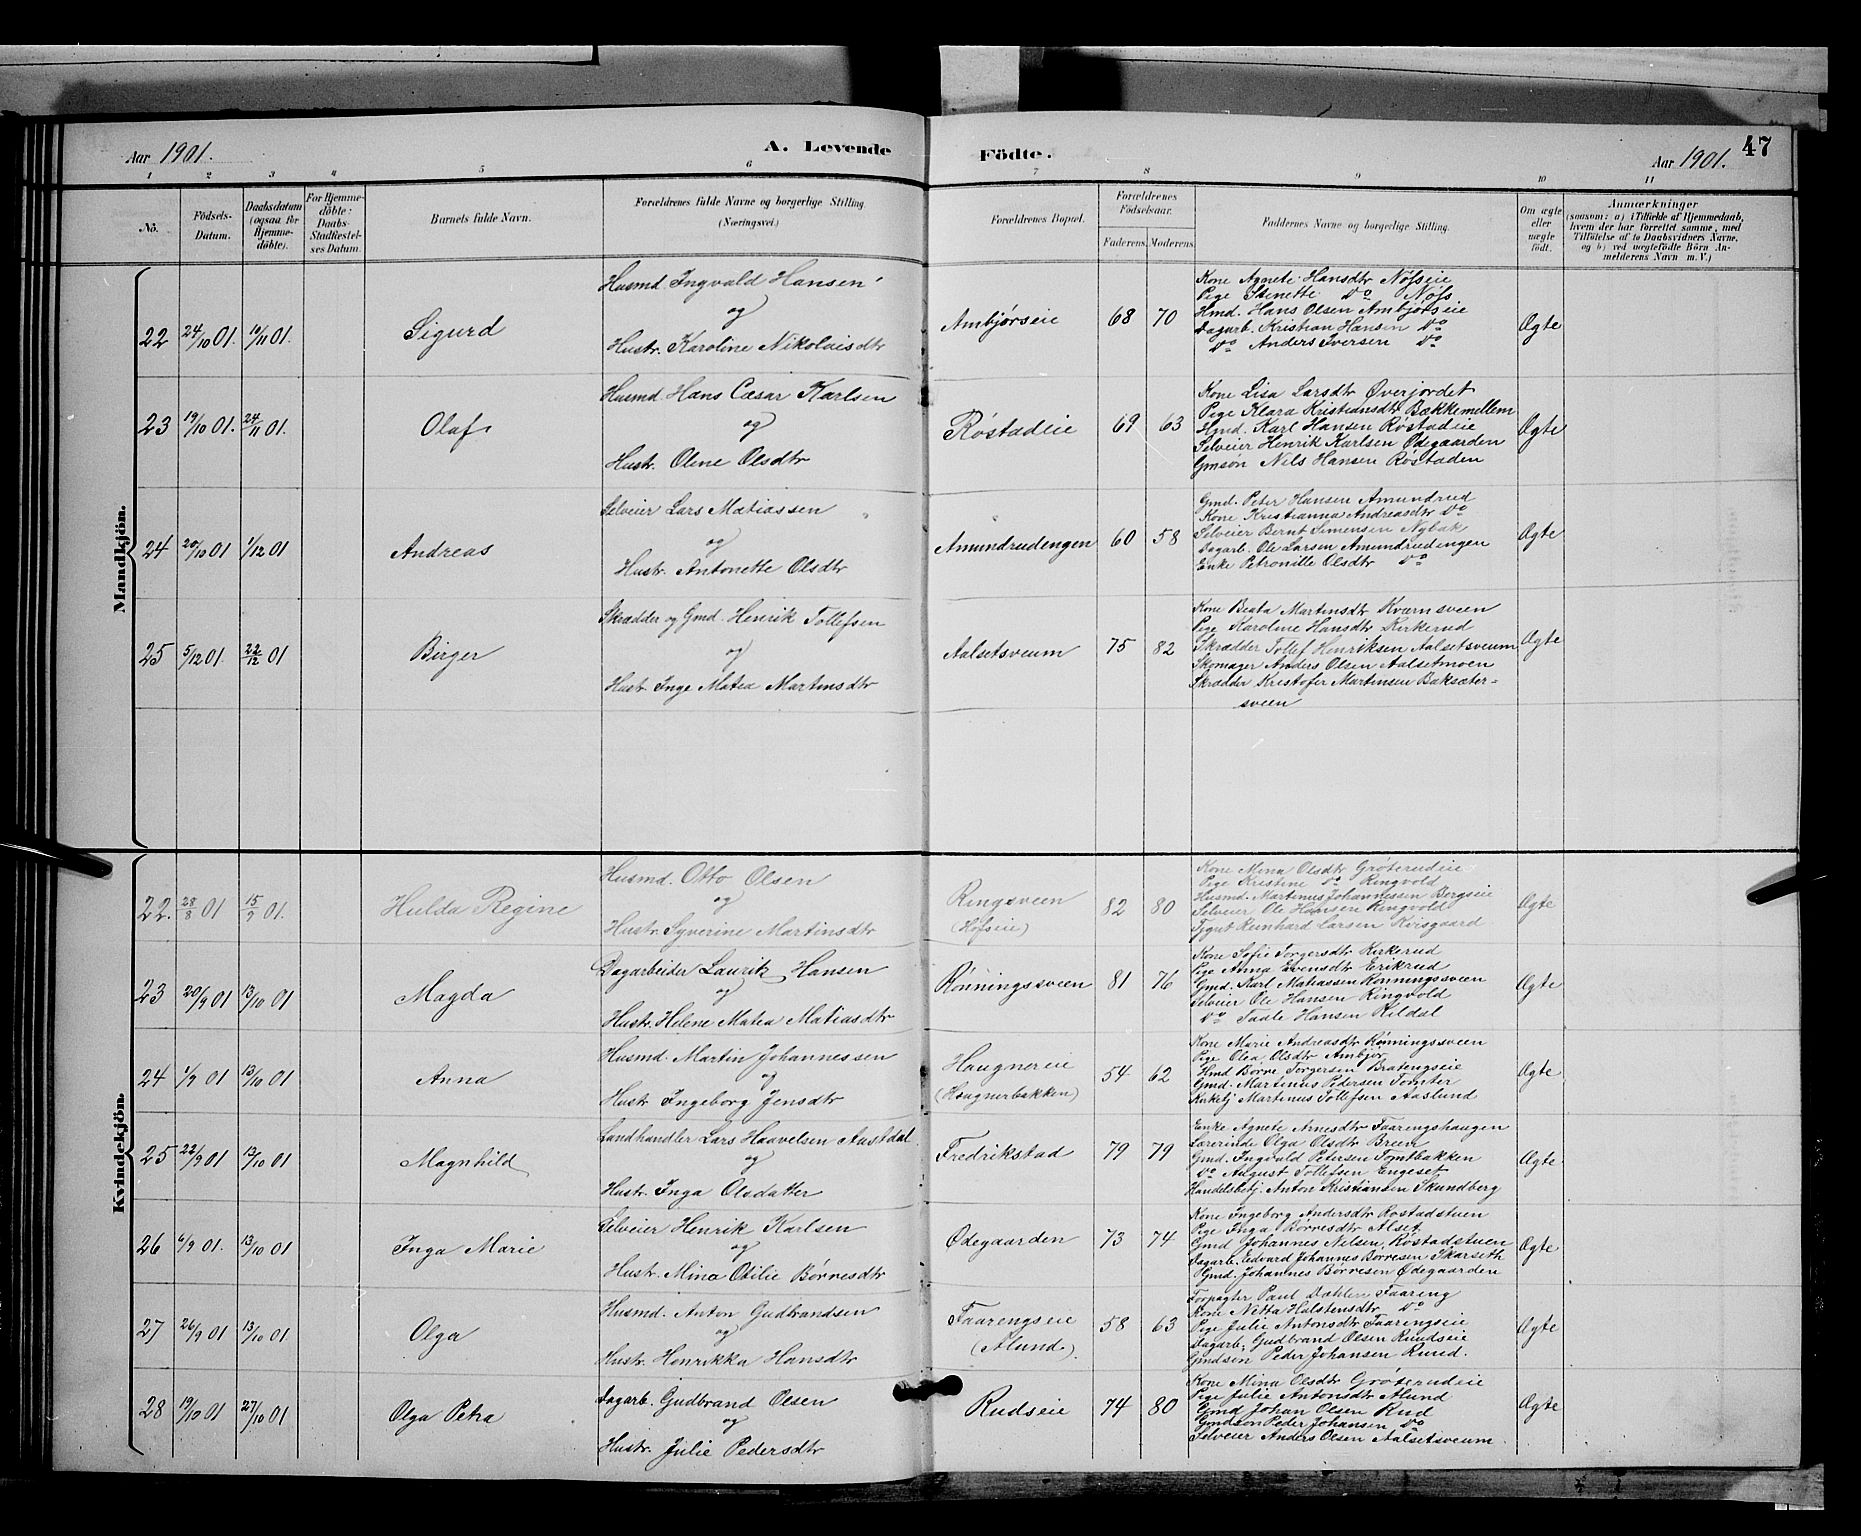 Aar 1901.
A. Levende Födte.
Aar 1901.
47
1 2 3 4 5 6 7 8 9 10 11
No.
Födsels-Datum.
Daabsdatum (ogsaa for Hjemmedöbte).
For Hjemmedöbte: Daabs-Stadfæstelses Datum.
Barnets fulde Navn.
Forældrenes fulde Navne og borgerlige Stilling (Næringsvei.)
Forældrenes Bopæl.
Forældrenes Födselsaar.
Faderens. Moderens.
Faddernes Navne og borgerlige Stilling.
Om ægte eller uægte födt.
Anmærkninger
(saasom: a) i Tilfælde af Hjemmedaab,
hvem der har forrettet samme, med
Tilföielse af to Daabsvidners Navne,
og b) ved uægtefödte Börn Anmelderens Navn m. V.)
Mandkjön.
22 24/10 01. 10/11 01. Sigurd
Husmd. Ingvald Hansen
og
Hustr. Karoline Nikolaisdtr
Ambjørseie 68 70
Kone Agnete Hansdtr Nøfseie
Pige Stenette Do Nøfs
Hmd. Hans Olsen Ambjørseie
Dagarb. Kristian Hansen Do
Do Anders Iversen Do
Ægte
23 19/10 01. 24/11 01. Olaf
Husmd. Hans Cæsar Karlsen
og
Hustr. Oline Olsdtr
Røstadeie 69 63
Kone Lisa Larsdtr Øverjordet
Pige Klara Kristiansdtr Bækkemellem
Hmd. Karl Hansen Røstadeie
Selveier Henrik Karlsen Ødegaarden
Gmsøn Nils Hansen Røstaden
Ægte
24 20/10 01 1/12 01 Andreas
Selveier Lars Matiassen
og
Hustr. Antonette Olsdtr
Amundrudengen 60 58
Gmd. Peter Hansen Amundrud
Kone Kristianna Andreasdtr Do
Selveier Bernt Simensen Nybak
Dagarb. Ole Larsen Amundrudengen
Enke Petronille Olsdtr Do
Ægte
25 5/12 01 22/12 01 Birger
Skrædder og Gmd. Henrik Tollefsen
og
Hustr. Inge Matea Martinsdtr
Aalsetsveum 75 82
Kone Beata Martinsdtr Kværnsveen
Pige Karoline Hansdtr Kirkerud
Skrædder Tollef Henriksen Aalsetsveum
Skomager Anders Olsen Aalsetmoen
Skrædder Kristofer Martinsen Baksæter-
sveen
Ægte
Kvindekjön.
22. 28/8 01 15/9 01. Hulda Regine
Husmd. Otto Olsen
og
Hustr. Syverine Martinsdtr
Ringsveen
(Hofseie)
82 80
Kone Mina Olsdtr Grøterudeie
Pige Kristine Do Ringvold
Husmd. Martinus Johannessen Bergseie
Selveier Ole Hansen Ringvold
Tygut Reinhard Larsen Kvisgaard
Ægte
23 20/9 01 13/10 01 Magda
Dagarbeider Lauritz Hansen
og
Hustr. Helene Matea Matiasdtr
Rønningsveen 81 76
Kone Sofie Torgersdtr Kirkerud
Pige Anna Evensdtr Erikrud
Gmd. Karl Matiassen Rønningsveen
Selveier Ole Hansen Ringvold
Do Taale Hansen Kildal
Ægte
24 1/9 01 13/10 01 Anna
Husmd. Martin Johannessen
og
Hustr Ingeborg Jensdtr
Haugnereie
(Haugnerbakken)
54 62
Kone Marie Andreasdtr Rønningssveen
Pige Olea Olsdtr Ambjør
Hmd Børre Torgersen Bratengseie
Gmd. Martinus Pedersen Tomter
Kirketj Martinus Tollefsen Aaslund
Ægte
25 22/9 01 13/10 01 Magnhild
Landhandler Lars Haavelsen Austdal
og
Hustr. Inga Olsdatter
Fredrikstad 79 79
Enke Agnete Arnesdtr Faarengshaugen
Lærerinde Olga Olsdtr Breen
Gmd. Ingvald Petersen Tomtbakken
Do August Tollefsen Engeset
Handelsbetj. Anton Kristiansen Skundberg
Ægte
26 6/9 01. 13/10 01 Inga Marie
Selveier Henrik Karlsen
og
Hustr. Mina Otilie Børresdtr
Ødegaarden 73 74
Kone Ingeborg Andersdtr Rostadstuen
Pige Inga Børresdtr Alset
Gmd Johannes Nelsen, Rostadstuen
Dagarb. Edvard Johannes Børresen Skarseth
Gmd. Johannes Børresen Ødegaarden
Ægte
27 26/9 01 13/10 01 Olga
Husmd. Anton Gudbrandsen
og
Hustr. Henrikka Hansdtr
Faarengseie
(Alund)
58 63
Forpagter Paul Dahlen Faaring
Kone Netta Halstensdtr Do
Pige Julie Antonsdtr Faarengseie
Dagarb. Gudbrand Olsen Ruudseie
Gmdsøn Peder Johansen Ruud.
Ægte
28 19/10 01 27/10 01 Olga Petra
Dagarb. Gudbrand Olsen
og
Hustr. Julie Pedersdtr
Rudseie 74 80
Kone Mina Olsdtr Grøterudeie
Pige Julie Antonsdtr Alund
Gmd Johan Olsen Rud
Gmdsøn Peder Johansen Do
Selveier Anders Olsen Aalsetsveum
Ægte